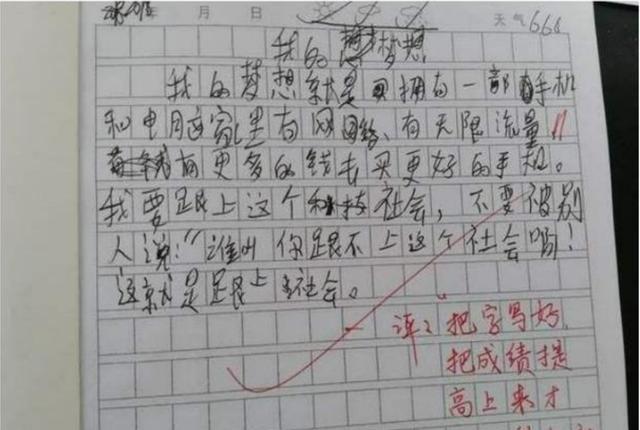 年 月 日 天气666
我的梦想
我的梦想就是拥有一部手机
和电脑家里有网络、有无限流量,
有更多的钱去买更好的手机。
我要跟上这个科技社会,不要被别
人说:“谁叫你跟不上这个社会哟!
这就是跟上社会。
评:把字写好
把成绩提
高上来才